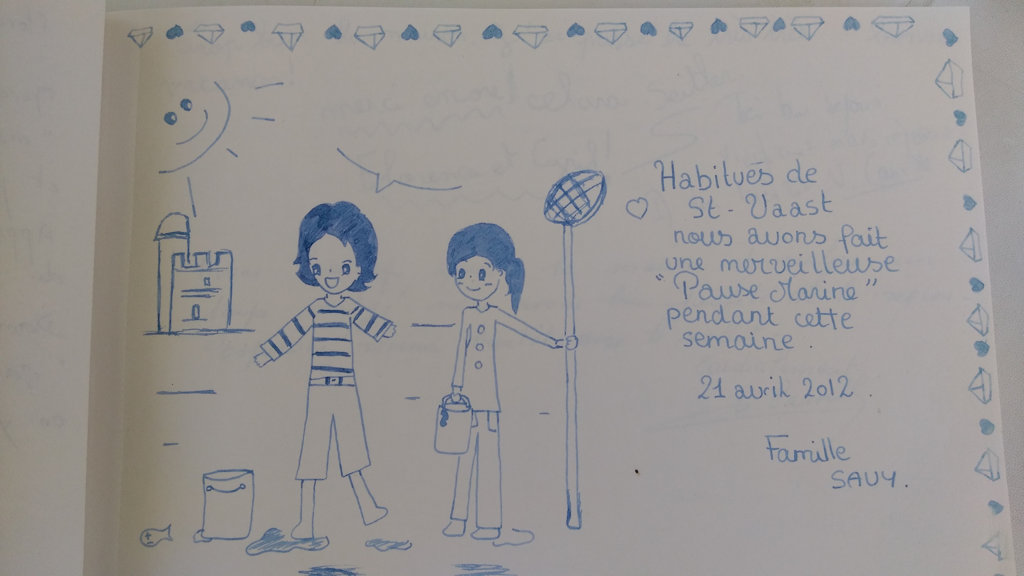 Habitués de
St-Vaast
nous avons fait
une merveilleuse
"Pause Marine"
pendant cette
semaine.
21 avril 2012.
Famille
SAUY.